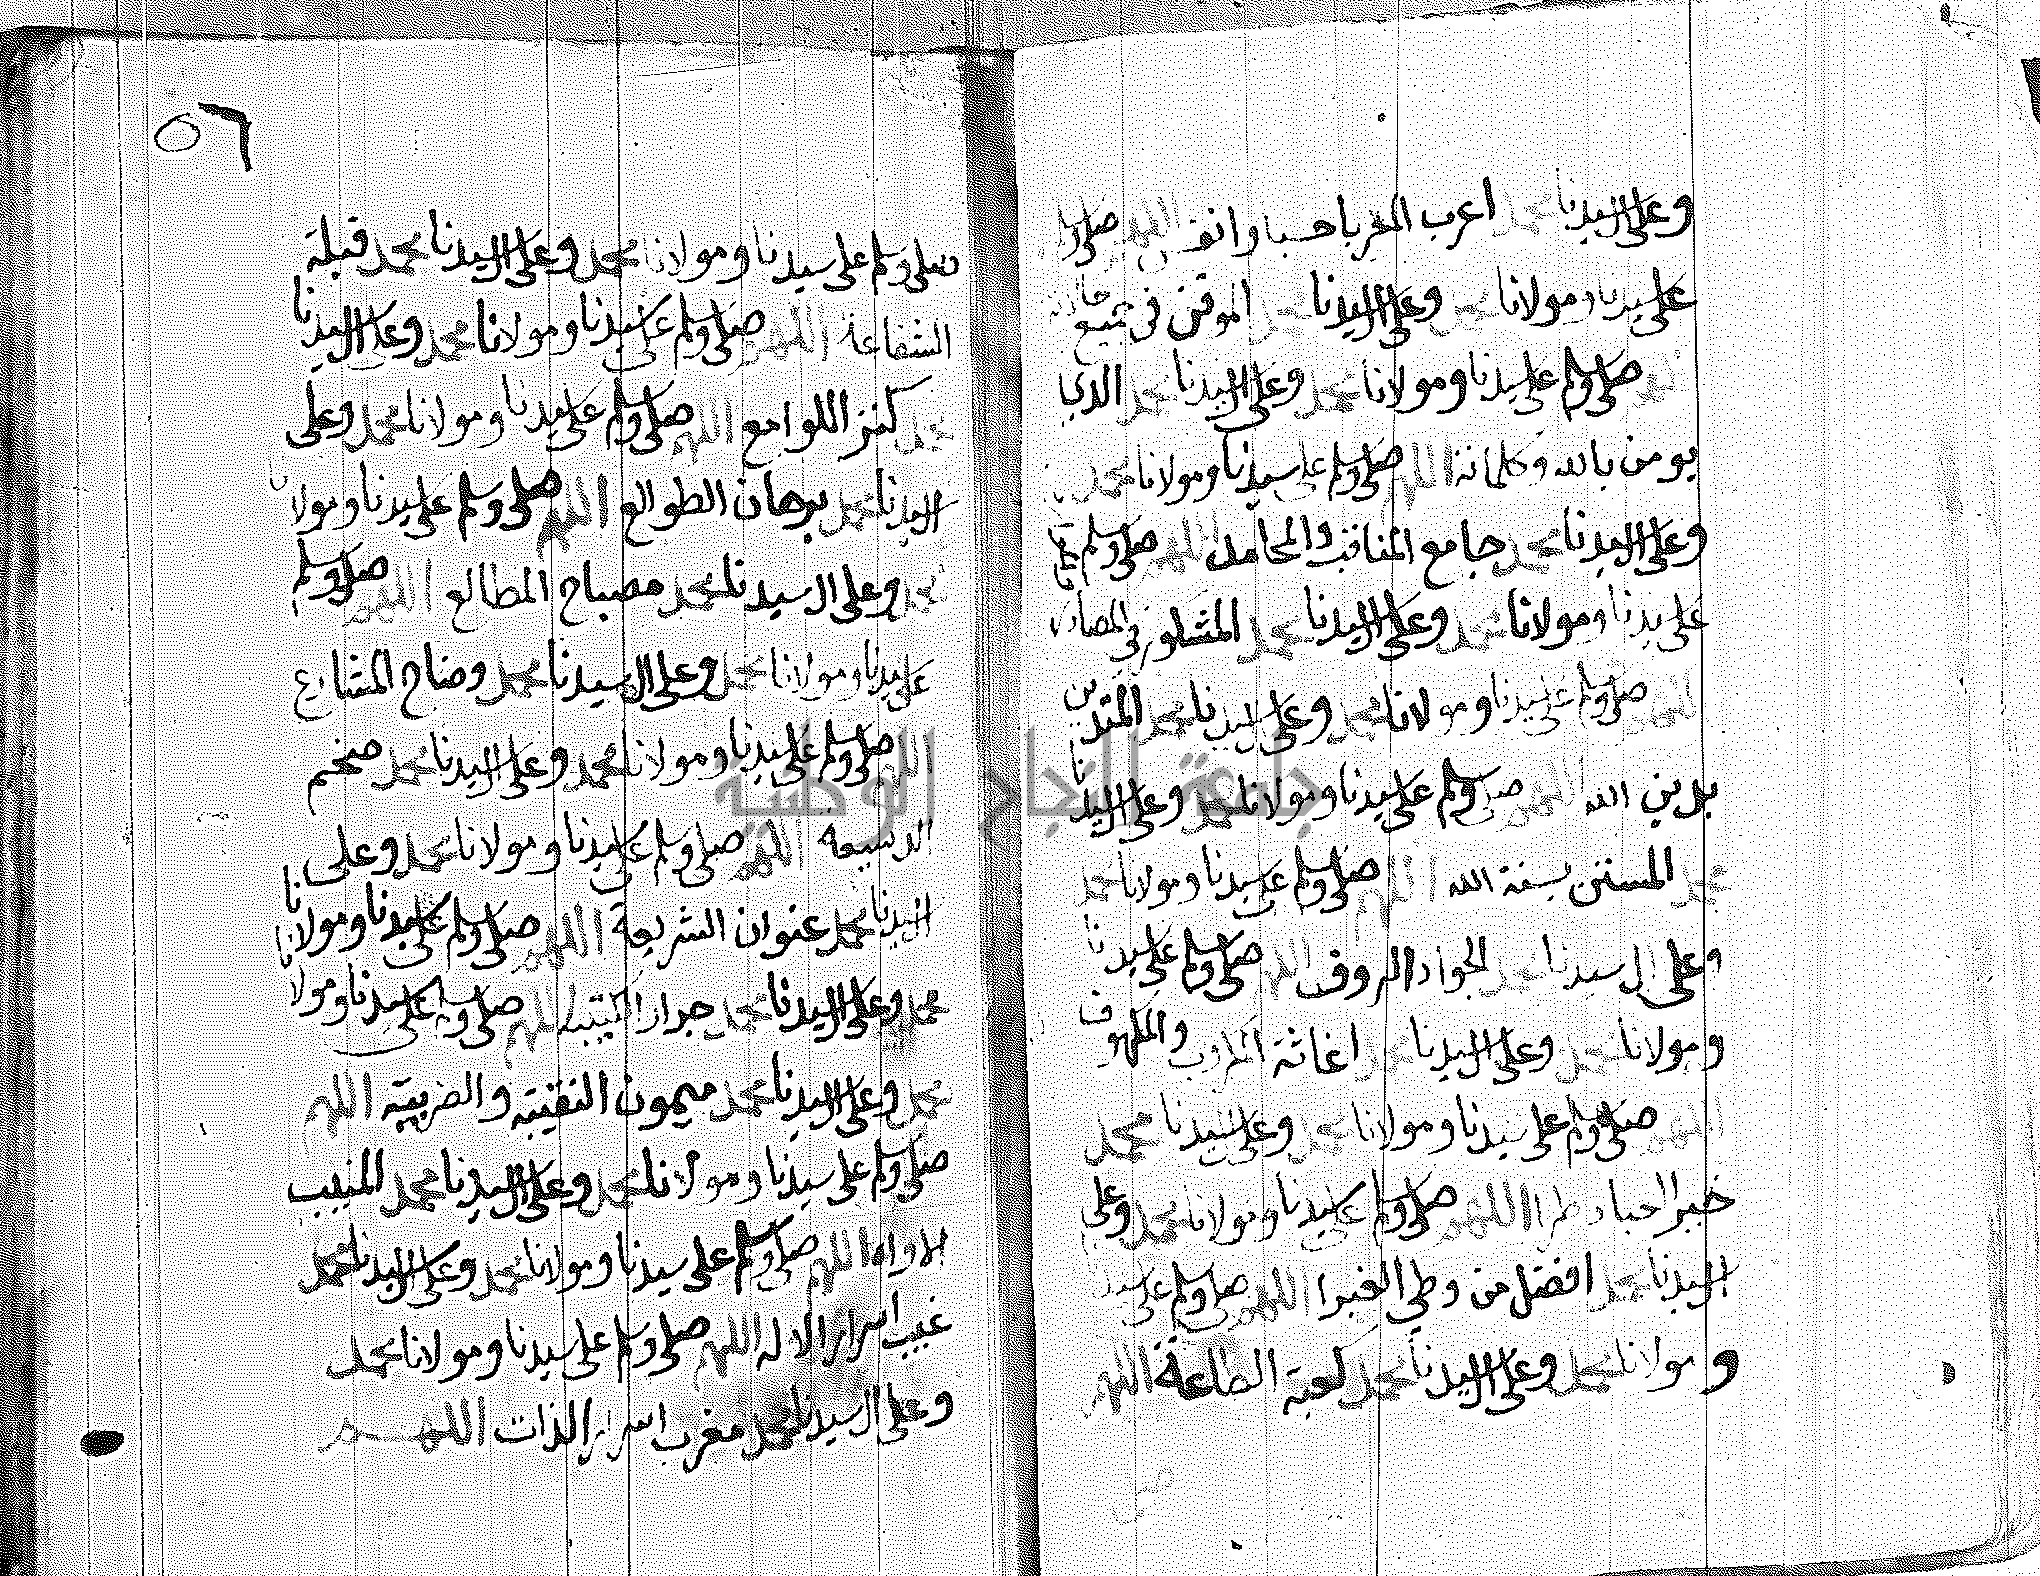 وعلى ال سيدنا محمد اعرب العربا حسبا وانفس اللهم صل وسلم
على سيدنا ومولانا محمد وعلى ال سيدنا محمد الموقن في جميع حالاته
اللهم صل وسلم على سيدنا ومولانا محمد وعلى ال سيدنا محمد الذي
يومن بالله وكلماته اللهم صل وسلم على سيدنا ومولانا محمد
وعلى ال سيدنا محمد جامع المناقب والمحامد اللهم صل وسلم
على سيدنا ومولانا محمد وعلى ال سيدنا محمد المشكور في المصادر
اللهم صل وسلم على سيدنا ومولانا محمد وعلى ال سيدنا محمد المتدين
بدين الله اللهم صل وسلم على سيدنا ومولانا محمد وعلى ال سيدنا
محمد المستن بسنة الله اللهم صل وسلم على سيدنا ومولانا محمد
وعلى ال سيدنا محمد الجواد الروف اللهم صل وسلم على سيدنا
ومولانا محمد وعلى ال سيدنا محمد اغاثة المكروب والملهوف
اللهم صل وسلم على سيدنا ومولانا محمد وعلى ال سيدنا محمد
خير العباد طرا اللهم صل وسلم على سيدنا ومولانا محمد وعلى
ال سيدنا محمد افضل من وطي الغبرا اللهم صل وسلم على سيدنا
ومولانا محمد وعلى ال سيدنا محمد كعبة الطاعة اللهم
٥٦
صل وسلم على سيدنا ومولانا محمد وعلى ال سيدنا محمد قبلة
الشفاعة اللهم صل وسلم على سيدنا ومولانا محمد وعلى ال سيدنا
محمد كنز اللوامع اللهم صل وسلم على سيدنا ومولانا محمد وعلى
ال سيدنا محمد برهان الطوالع اللهم صل وسلم على سيدنا ومولانا
محمد وعلى ال سيدنا محمد مصباح المطالع اللهم صل وسلم
على سيدنا ومولانا محمد وعلى ال سيدنا محمد وضاح المشارع
اللهم صل وسلم على سيدنا ومولانا محمد وعلى ال سيدنا محمد ضخم
الدسيعه اللهم صل وسلم على سيدنا ومولانا محمد وعلى
ال سيدنا محمد عنوان الشريعة اللهم صل وسلم على سيدنا ومولانا
محمد وعلى ال سيدنا محمد جرار الكتيبه اللهم صل وسلم على سيدنا ومولانا
محمد وعلى ال سيدنا محمد ميمون النقيبة والضريبة اللهم
صل وسلم على سيدنا ومولانا محمد وعلى ال سيدنا محمد المنيب
الاواه اللهم صل وسلم على سيدنا ومولانا محمد وعلى ال سيدنا محمد
غيب اسرار الاله اللهم صل وسلم على سيدنا ومولانا محمد
وعلى ال سيدنا محمد مغرب اسرار الذات اللهم
جامعة النجاح الوطنية